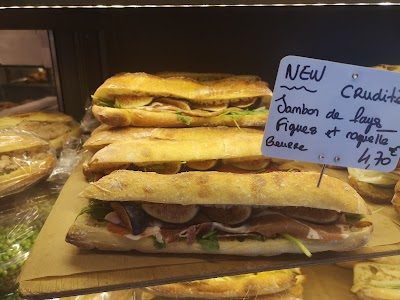 NEW Crudité
Jambon de pays
figues et roquette
Beurre 4.70€